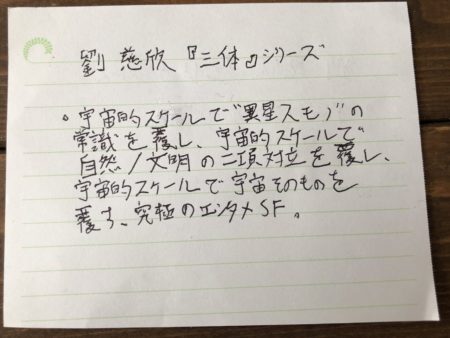 劉 慈欣 『三体』シリーズ
。宇宙的スケールで"異星スモノ"の
常識を覆し、宇宙的スケールで
自然/文明の二項対立を覆し、
宇宙的スケールで宇宙そのものを
覆す、究極のエンタメSF。